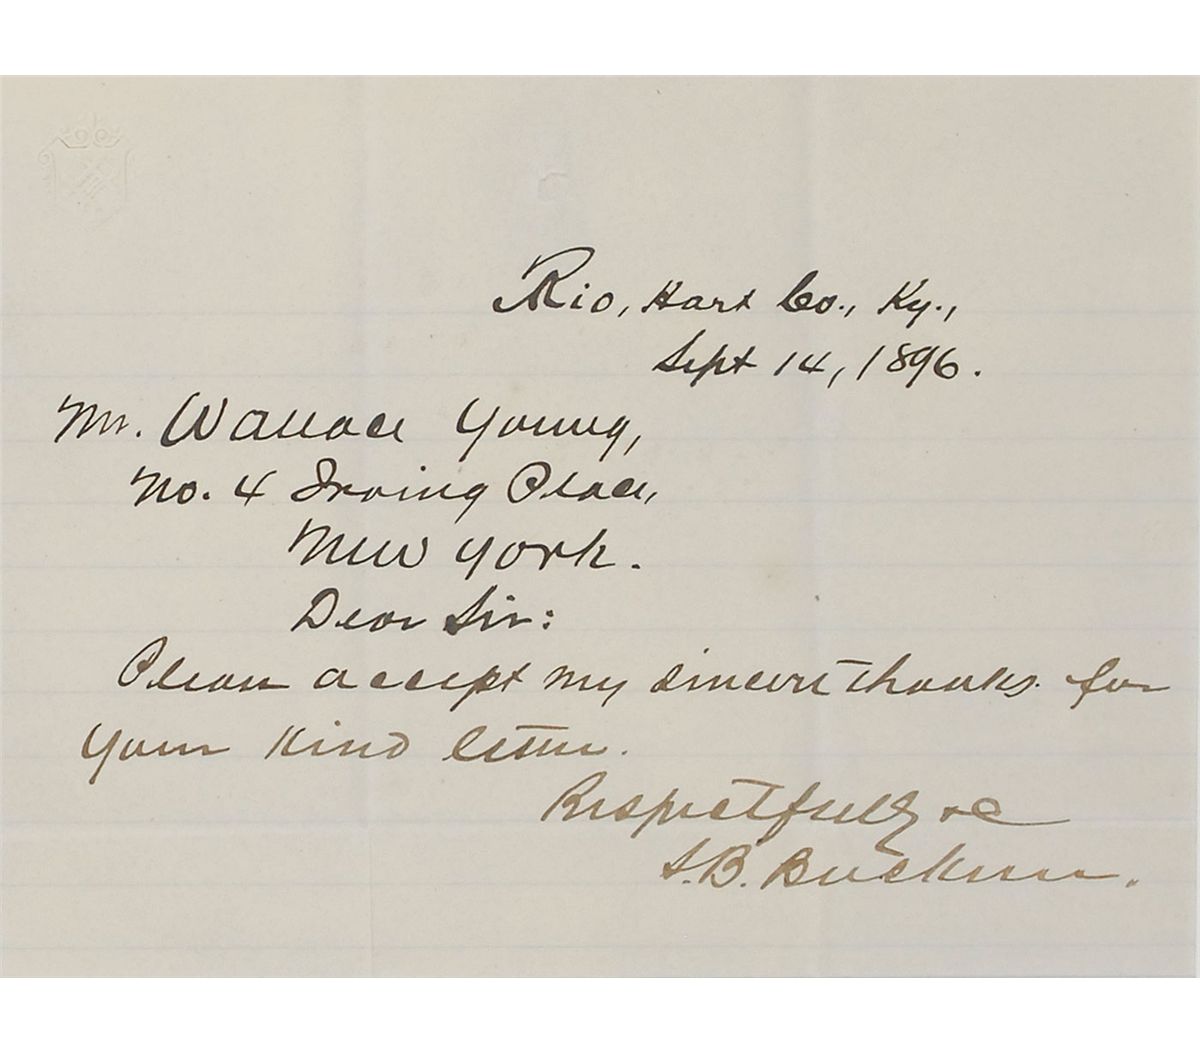 Rio, Hart Co., Ky.,
Sept 14, 1896.
Mr. Wallace Young,
No. 4 Irving Place,
New York.
Dear Sir:
Please accept my sincere thanks for
your kind letter.
Respectfully &c
S. B. Buckner.